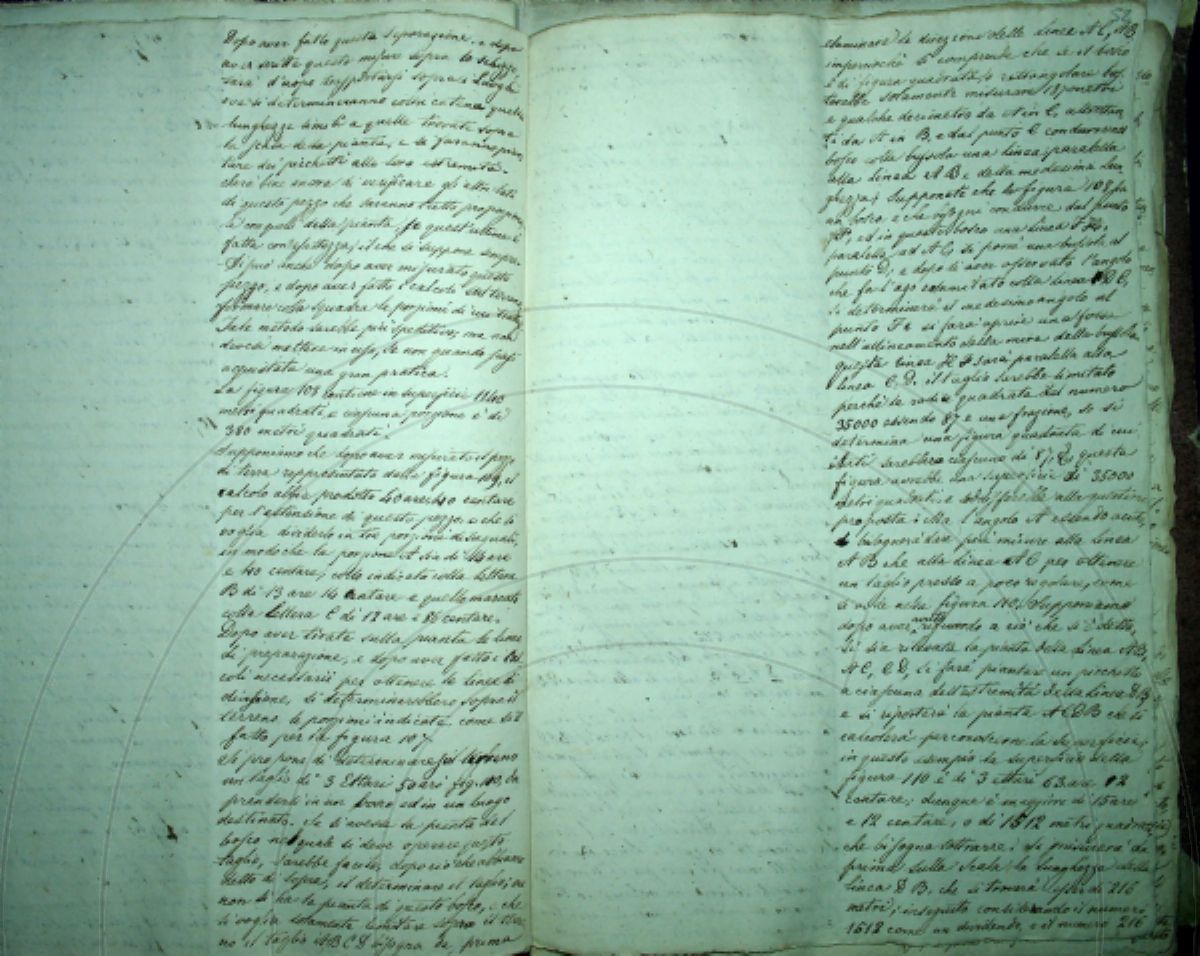 Dopo aver fatto questa separazione, e dopo
aver scritte queste misure sopra lo schizzo
sarà d'uopo sopra i luoghi
ove si determineranno colla catena quelle
lunghezze simili a quelle trovate sopra
la scala della pianta, e si faranno pian
tare dei picchetti alle loro estremità.
sarà bene ancora di verificare gli altri lati
di questo pezzo che saranno proporzio
con quelli della pianta, se quest'ultima è
fatta con esattezza, il che si suppone sempre.
Si può anche dopo aver misurato questo
pezzo, e dopo aver fatto i calcoli sul terreno
formare colla squadra le porzioni di
Tale metodo sarebbe più speditivo, ma non
devesi mettere in uso, se non quando siasi
acquistata una gran pratica.
La figura 108 contiene in superficie 1140
metri quadrati e ciascuna porzione è di
380 metri quadrati.
Supponiamo che dopo aver misurato il pezzo
di terra rappresentato dalla figura 109, il
calcolo abbia prodotto 40 are, 40 centare
per l'estensione di questo pezzo, e che si
voglia dividerlo in tre porzioni disuguali,
in modo che la porzione A sia di 14 are
e 40 centare, colla indicata colla lettera
B di 13 are 14 centare e quella marcata
colla lettera C di 12 are e 86 centare.
Dopo aver tirate sulla pianta le linee
di preparazione, e dopo aver fatto i cal
coli necessarii per ottenere le linee di
divisione, si determinerebbero sopra il
terreno le porzioni indicate come si è
fatto per la figura 107.
Si propone di determinare sul terreno
un taglio di 3 Ettari 50 ari fig. 110, da
prendersi in un bosco ed in un luogo
destinato. Se si avesse la pianta del
bosco nel quale si deve operare questo
taglio, sarebbe facile, dopo ciò che abbiamo
detto di sopra, il determinare il taglio; ma
non si ha la pianta di questo bosco, e che
si voglia solamente limitare sopra il terre
no il taglio ABCD bisogna da prima
esaminare la direzione delle linee AC, AB
imperciochè si comprende che se il bosco
è di figura quadrata o rettangolare bas
terebbe solamente misurare 187 metri
e qualche decimetro da A in C, altrettan
ti da A in B, e dal punto C condurre nel
bosco colla bussola una linea parallela
alla linea AB e della medesima lun
ghezza; Supponete che la figura 108 sia
un bosco, e che bisogni condurre dal punto
F, ed in questo bosco una linea FH,
parallela ad AC, si pone una bussola al
punto D, e dopo di aver osservato l'angolo
che fa l'ago calamitato colla linea DC,
si determinerà il medesimo angolo al
punto F e si farà aprire una
nell'allineamento della mira della bussola
questa linea HF sarà parallela alla
linea C.D. il taglio sarebbe limitato
perchè la radice quadrata del numero
35000 essendo 187 e una frazione, se si
determina una figura quadrata di cui
i lati sarebbero ciascuno di 187, questa
figura avrebbe una superficie di 35000
metri quadrati e soddisferebbe alla questione
proposta: Ma l'angolo A essendo acuto,
bisognerà dare più misure alla linea
AB che alla linea AC per ottenere
un taglio presso a poco regolare, come
si vede nella figura 110. Supponiamo
dopo aver avuto riguardo a ciò che si è detto,
si sia rilevata la pianta della linea AB,
AC, CD, si farà piantare un picchetto
a ciascuna dell'estremità della linea DB
e si riporterà la pianta ACDB che si
calcolerà per conoscere la superficie;
in questo esempio la superficie della
figura 110 è di 3 ettari 63 are 12
centare; dunque è maggiore di 15 are
e 12 centare, o di 1512 metri quadrati,
che bisogna sottrarre; si misurerà da
prima sulla scala la lunghezza della
linea DB, che si troverà esser di 216
metri; in seguito considerando il numero
1512 come un dividendo, e il numero 216